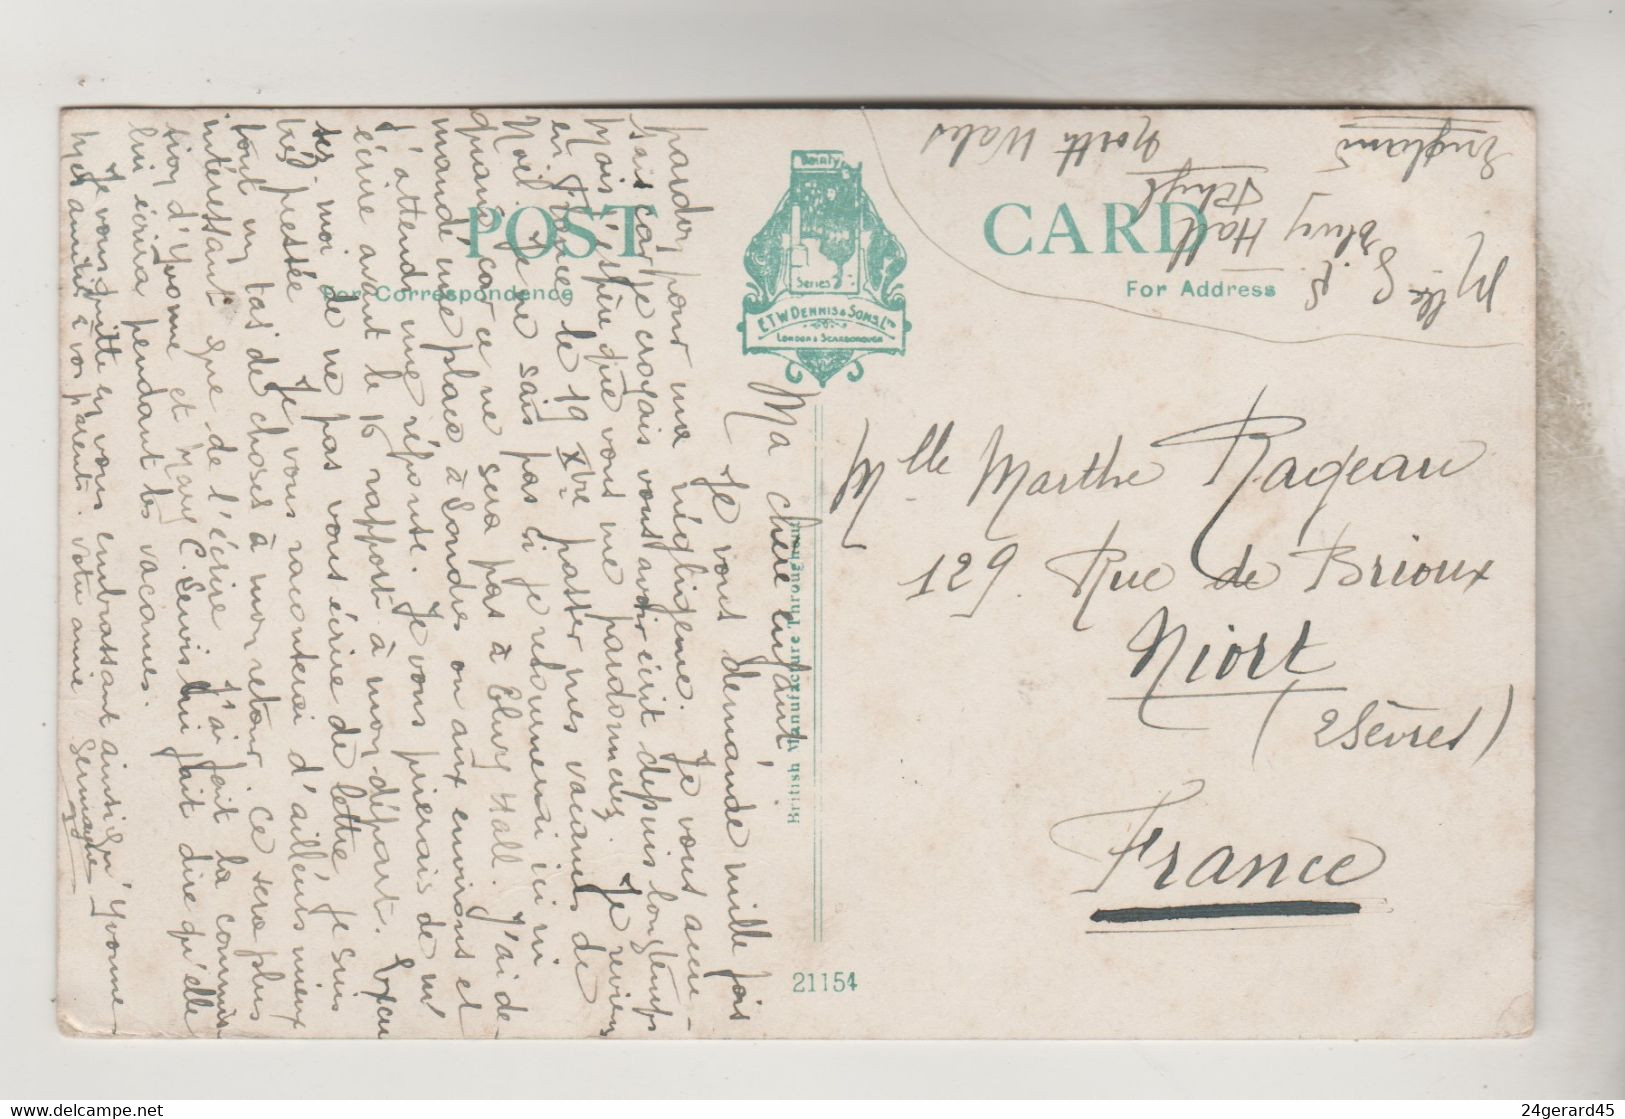 POST CARD
For Correspondence
For Address
Dainty
Series
E.T.W. DENNIS & SONS, LTD
LONDON & SCARBOROUGH
British Manufacture Throughout
21154
Ma chère enfant
Je vous demande mille fois
pardon pour ma négligence. Je vous accu-
sais car je croyais vous avoir écrit depuis longtemps
Mais j'espère que vous me pardonnez. Je reviens
en France le 19 Xbre passer mes vacances de
Noël. Je ne sais pas si je retournerai ici ni
quand car ce ne sera pas à Elwy Hall. J'ai de-
mandé une place à Londres ou aux environs et
j'attends une réponse. Je vous prierais de m'
écrire avant le 16 rapport à mon départ. Excu
sez-moi de ne pas vous écrire de lettre, je suis
très pressée. Je vous raconterai d'ailleurs mieux
tout un tas de choses à mon retour. Ce sera plus
intéressant que de l'écrire. J'ai fait la commis
sion d'Yvonne et Mary C. Lewis lui fait dire qu'elle
lui écrira pendant les vacances.
Je vous quitte en vous embrassant ainsi qu'Yvonne
Mes amitiés à vos parents. Votre amie
Germaine
Mlle G. S.
Elwy Hall
Rhyl
North Wales
England
Mlle Marthe Rageau
129. Rue de Brioux
Niort
(2 Sèvres)
France
24gerard45
www.delcampe.net